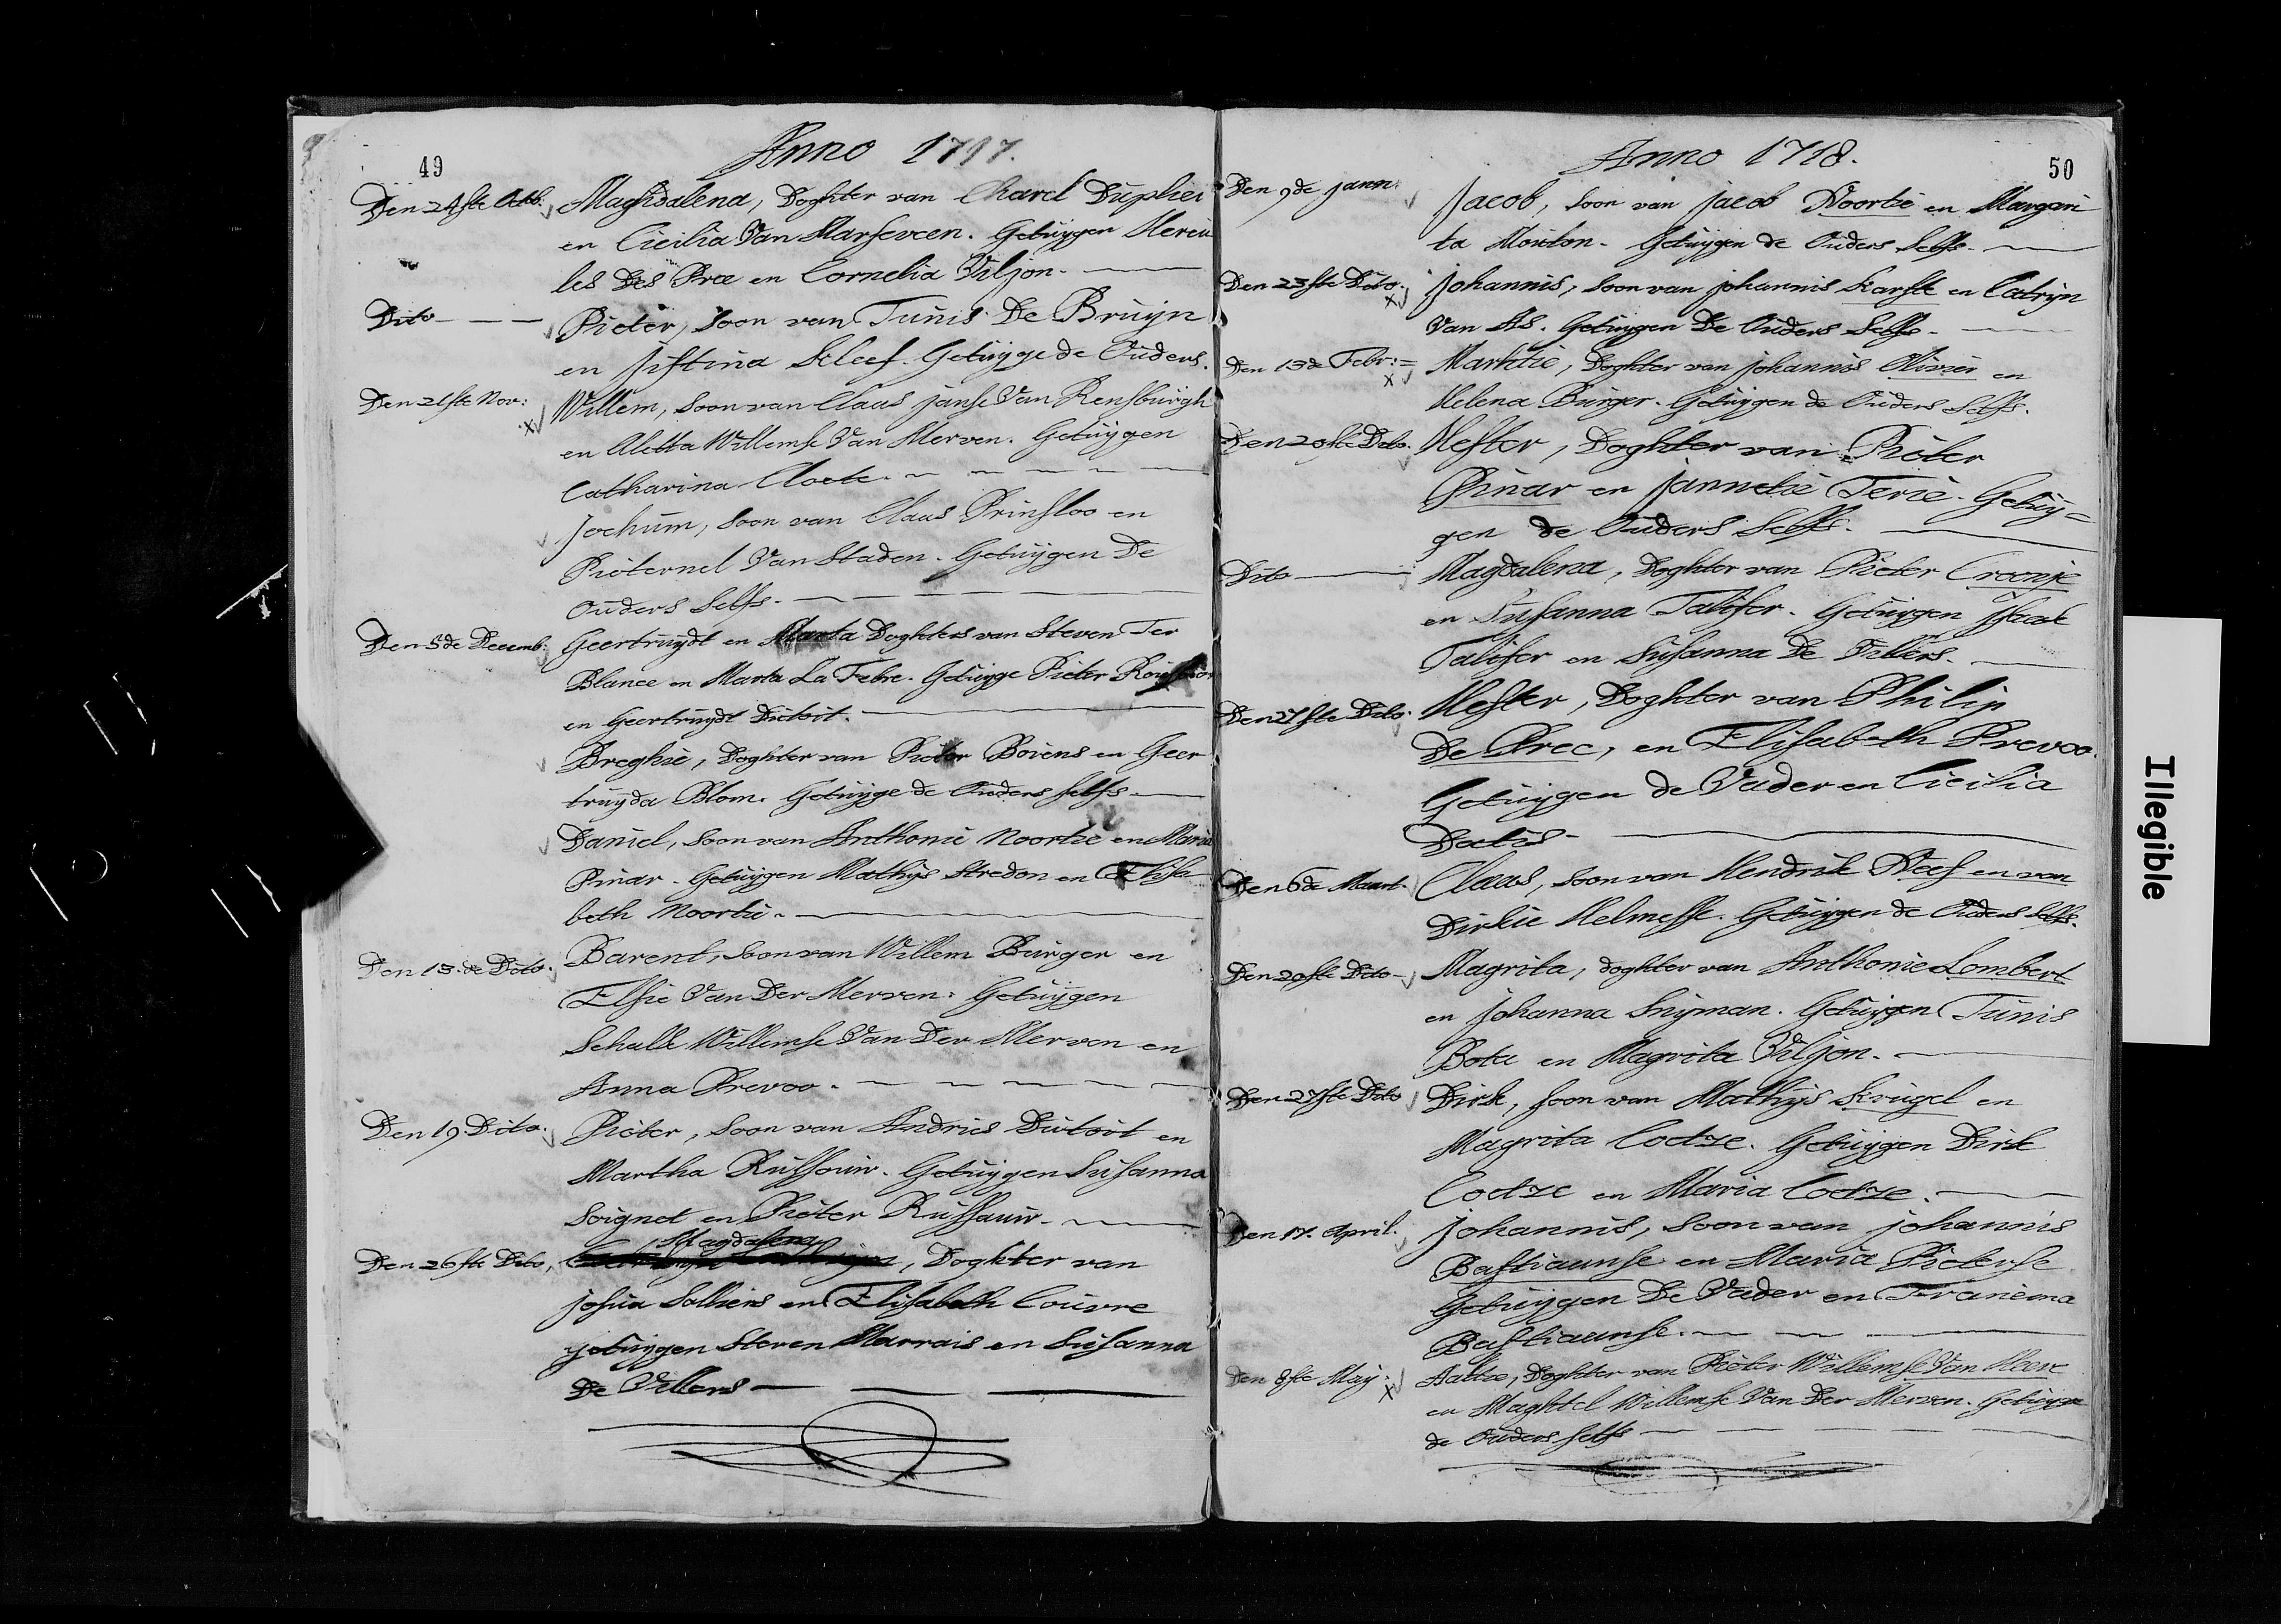 49
Anno 1717.
Den 24ste Octb: Maghdalena, Doghter van Charel Duplier
en Cicilia Van Marseveen. Getuygen Hercu
les Des Pree en Cornelia Viljon.
Dito Pieter, Soon van Tunis De Bruyn
en Jistina Kleef. Getuyge de Ouders.
Den 21ste Nov: Willem, Soon van Claas janse Van Rensburgh
en Aletta Willemse Van Merven. Getuygen
Catharina Cloete.
Jochum, Soon van Claas Prinsloo en
Pieternel Van Staden. Getuygen De
Ouders Selfs.
Den 5de Decemb: Geertruydt en Marta Doghters van Steven Ter
Blance en Marta La Febre. Getuyge Pieter
en Geertruydt Dutoit.
Breghie, Doghter van Pieter Boiens en Geer
truyda Blom. Getuyge de Ouders selfs
Daniel, Soon van Anthonie Noortie en Maria
Pinar. Getuygen Mathys Stredon en Elisa
beth Noortie.
Den 13de Dito. Barent, Soon van Willem Burger en
Elsie Van Der Merven. Getuygen
Schalk Willemse Van Der Merven en
Anna Prevoo.
Den 19 Dito. Pieter, Soon van Andries Dutoit en
Martha Russouw. Getuygen Susanna
Soignet en Pieter Russauw.
Magdalena
Den 26ste Dito, , Doghter van
josua Solliers en Elisabeth Couvre
getuygen Steven Marrais en Susanna
De Villers
Anno 1718.
50
Den 9de jann: Jacob, Soon van jacob Noortie en Margari
ta Mouton. Getuygen de Ouders Selfs.
Den 23ste Dito. Johannis, Soon van johannis Karste en Catryn
Van As. Getuygen De Ouders Selfs.
Den 13de Febr: Marhtie, Doghter van johannis Olivier en
Helena Burger. Getuygen de Ouders Selfs.
Den 20ste Dito. Hester, Doghter van Pieter
Pinar en Jannetie Terie. Getuy=
gen de Ouders Selfs.
Dito Magdalena, Doghter van Pieter Cronje
en Susanna Talifer. Getuygen Isaak
Talifer en Susanna De Villers.
Den 27ste Dito. Hester, Doghter van Philip
De Pree, en Elisabeth Prevoo.
Getuygen de Vader en Cicilia
Daetis
Den 6de Maart. Claas, Soon van Hendrik Neef en van
Dirkie Helmesse. Getuygen de Ouders Selfs.
Den 20ste Dito Magrita, doghter van Anthonie Lombert
en Johanna Snyman. Getuygen Tunis
Bota en Magrita Viljon.
Den 27ste Dito Dirk, soon van Mathys Krugel en
Magrita Codze. Getuygen Dirk
Codze en Maria Codze.
Den 17. April. Johannis, Soon van johannis
Bastiaanse en Maria Pieterse
Getuygen De Vader en Franciena
Bastiaanse.
Den 8ste May: Aaltie, Doghter van Pieter Willemse Van Heere
en Maghtel Willemse Van Der Merven. Getuyge
de Ouders selfs
Illegible